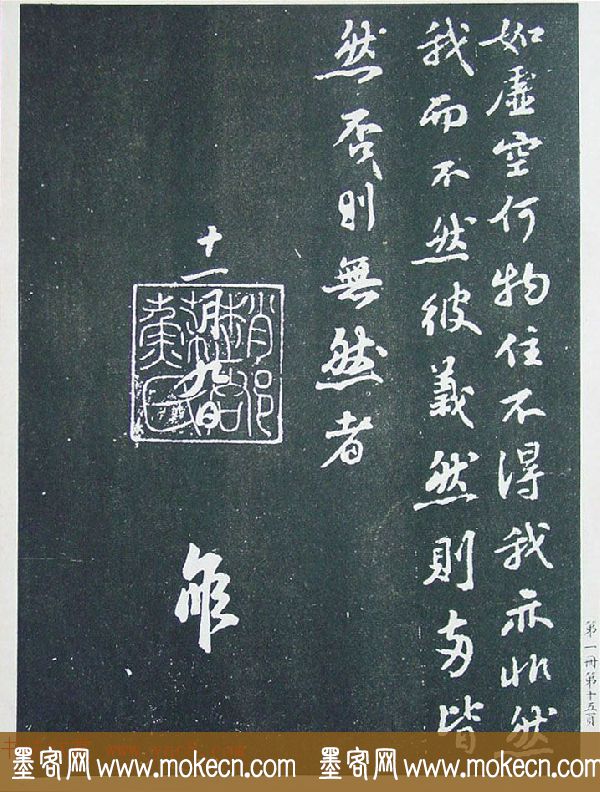 如虛空何物住不得我亦然
我而不然彼義然則兩皆
然否則無然者
十一月九日
第一冊第十五頁
墨客网 www.mokecn.com 墨客网 www.mokecn.com